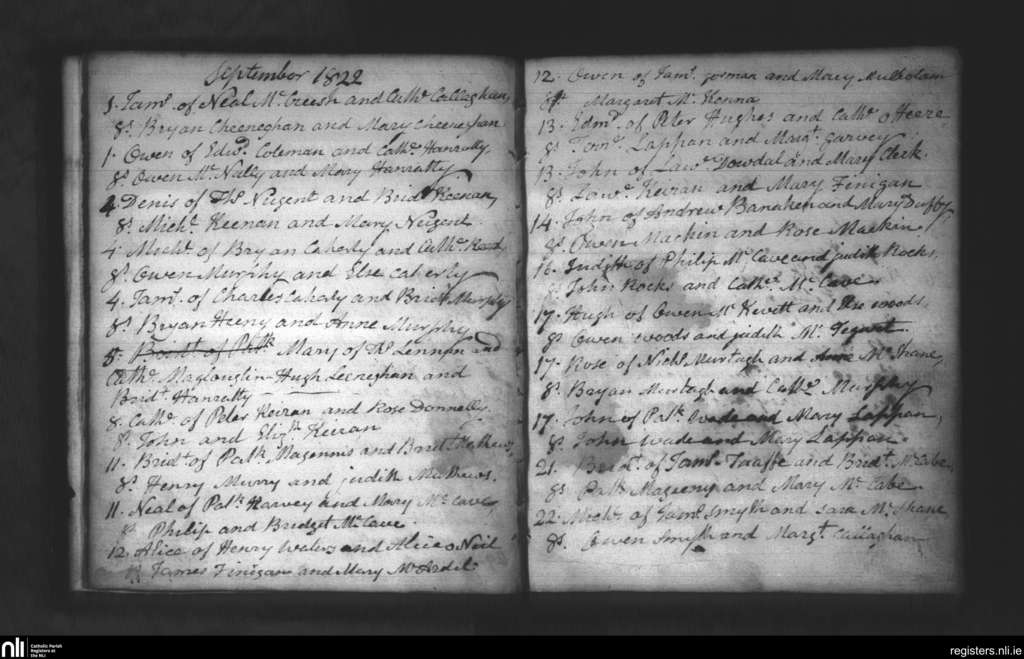 September 1822
1. Jams. of Neal Mc Creesh and Cathe. Callaghan
Ss. Bryan Cheeneghan and Mary Cheeneghan
1. Owen of Edwd. Coleman and Cathe. Hanratty
Ss. Owen Mc Nally and Mary Hanratty
4 Denis of Ths Nugent and Bridt Keenan
Ss. Michl. Keenan and Mary Nugent
4. Michl. of Bryan Caherly and Cathe.
Ss. Owen Murphy and Else Caherly
4. Jams. of Charles Cahaly and Bridt Murphy
Ss. Bryan Heeny and Anne Murphy
8. Bridt. of Patk Mary of Ths Lennon and
Cathe. Magloughlin Hugh Leeneghan and
Bridt. Hanratty
8. Cathe. of Peter Keiran and Rose Donnelly.
Ss. John and Elizth Keiran
11. Bridt. of Patk. Magennis and Bridt Mathews
Ss. Henry Murry and judith Mathews.
11. Neal of Patk. Harvey and Mary Mc Cave
Ss. Philip and Bridget Mc Cave
12. Alice of Henry Waters and Alice o Neil
James Finigan and Mary Mc Ardel.
12. Owen of Jams. gorman and Mary Mulholam
Margaret Mc Kenna
13. Edmd. of Peter Hughes and Cathe. o Heere
Ss Lappan and Margt. garvey
13. John of Lawe. Dowdal and Mary Clerk.
Ss. Lawe. Keiran and Mary Finigan
14. John of Andrew Banaken and Mary Duffy
Ss. Owen Mackin and Rose Mackin
16. Judith of Philip Mc Cave and judith Rocks.
John Rocks and Cathe. Mc Cave
17. Hugh of Owen Mc Kevitt and Else woods.
Ss Owen woods and judith Mc
17. Rose of Nichs. Murtagh and Anne Mc Shane,
Ss. Bryan Murtagh and Cathe. Murphy
17. John of Patk. Wade and Mary Lappan,
Ss. John Wade and Mary Lappan.
21. Bridt. of Jams. Traffe and Bridt. Mc Cabe
Ss Patk Mageeny and Mary Mc Cabe
22. Michl. of Jams Smyth and Sara Mc Shane
Ss. Owen Smyth and Margt. Callaghan
nli
Catholic Parish
Registers at
the NLI
registers.nli.ie